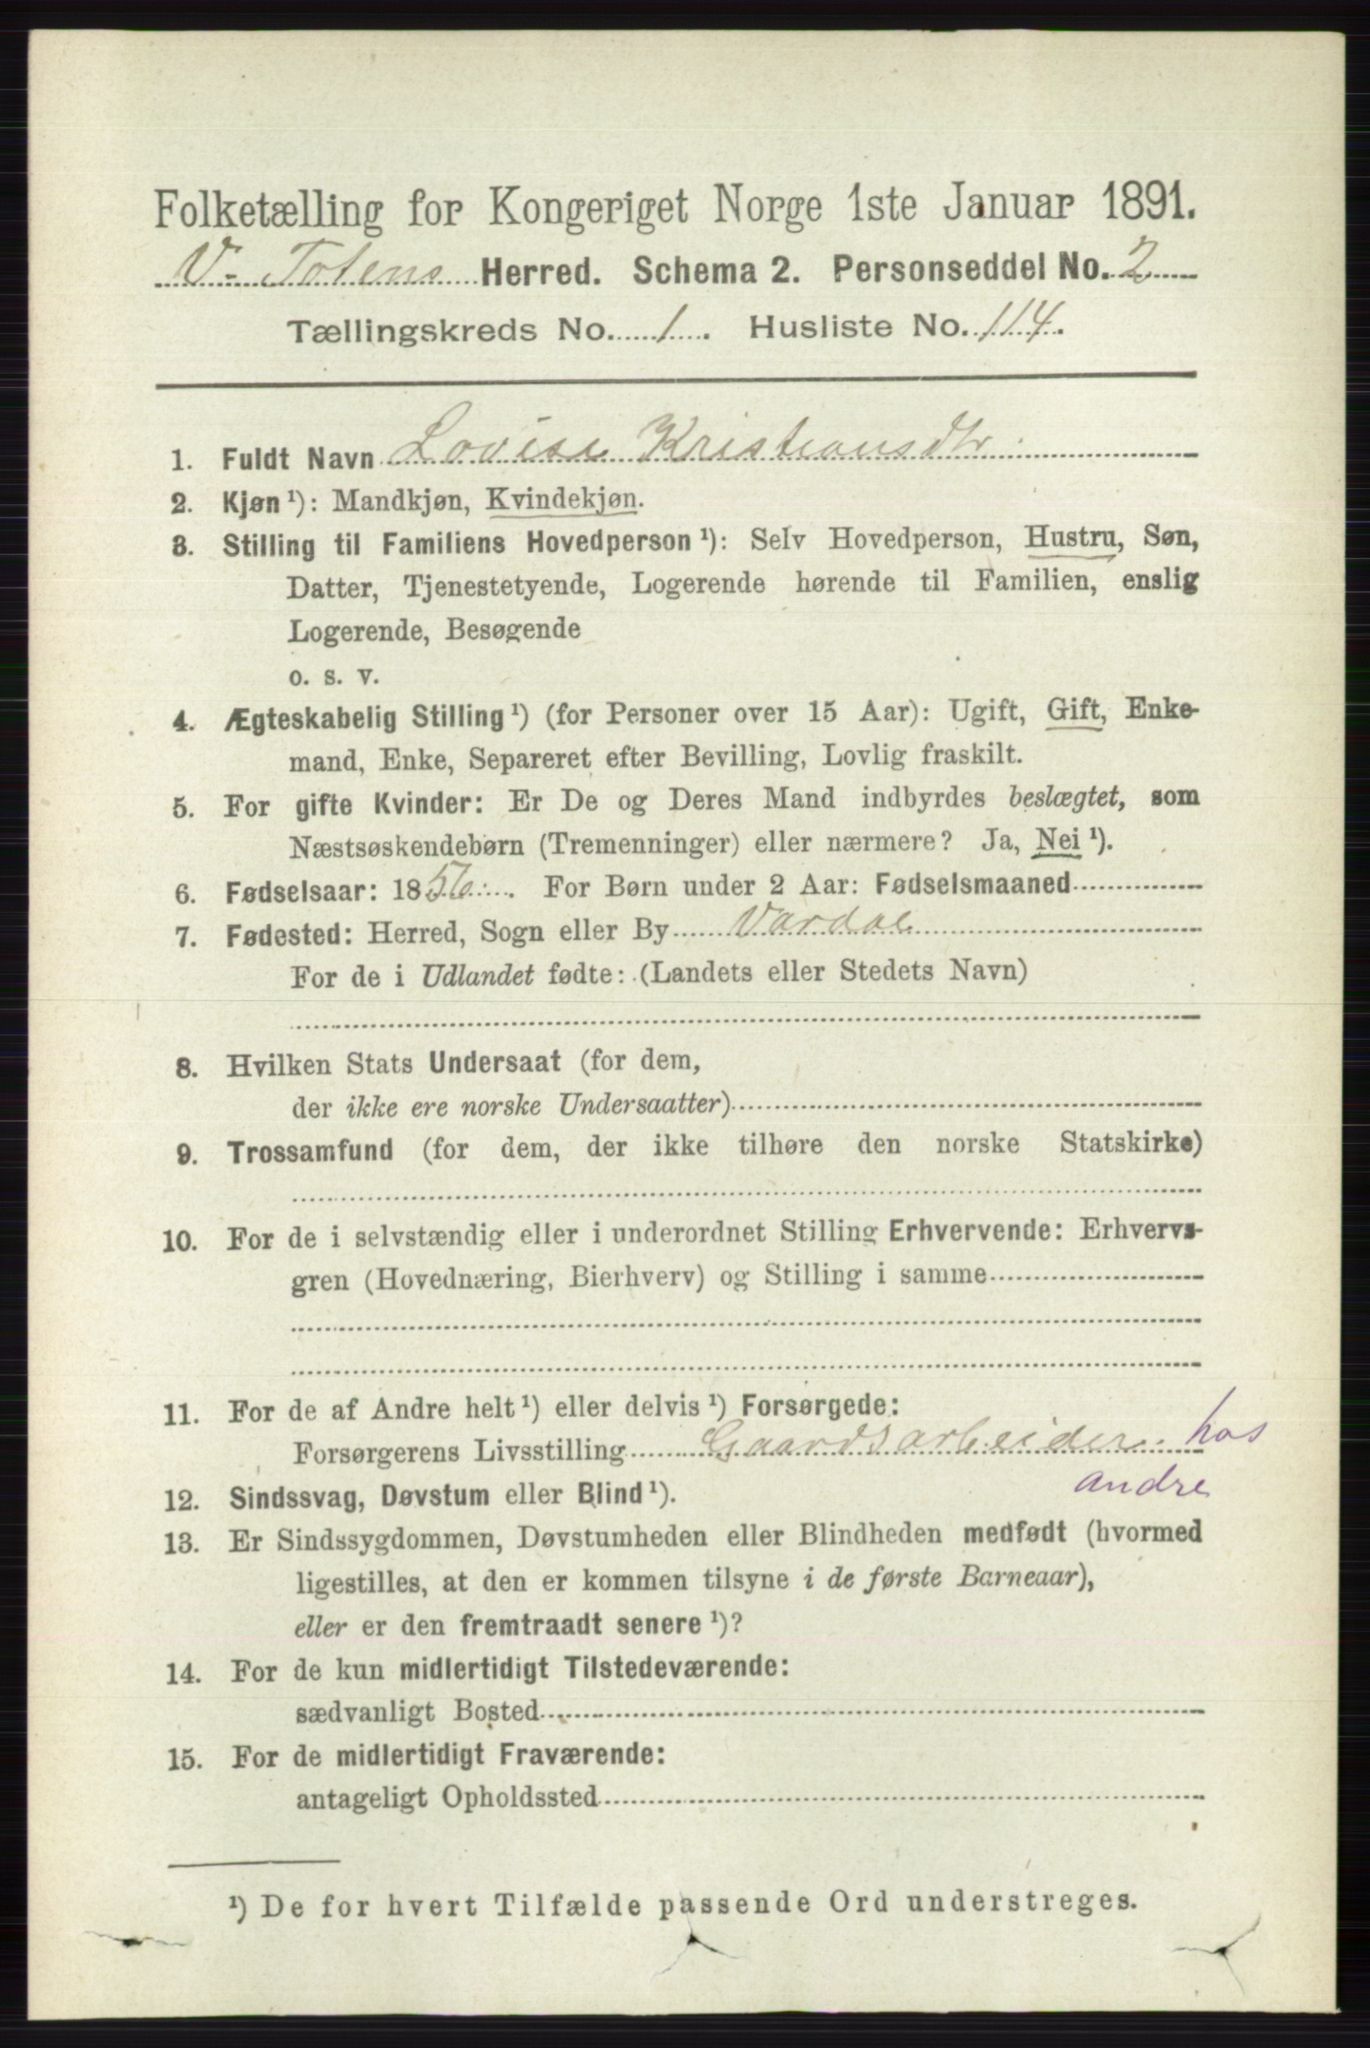 Folketælling for Kongeriget Norge 1ste Januar 1891.
V. Totens Herred. Schema 2. Personseddel No. 2
Tællingskreds No. 1. Husliste No. 114.
1. Fuldt Navn Lovise Kristiansdtr.
2. Kjøn ¹): Mandkjøn, Kvindekjøn.
3. Stilling til Familiens Hovedperson ¹): Selv Hovedperson, Hustru, Søn,
Datter, Tjenestetyende, Logerende hørende til Familien, enslig
Logerende, Besøgende
o. s. v.
4. Ægteskabelig Stilling ¹) (for Personer over 15 Aar): Ugift, Gift, Enke-
mand, Enke, Separeret efter Bevilling, Lovlig fraskilt.
5. For gifte Kvinder: Er De og Deres Mand indbyrdes beslægtet, som
Næstsøskendebørn (Tremenninger) eller nærmere? Ja, Nei ¹).
6. Fødselsaar: 1856. For Børn under 2 Aar: Fødselsmaaned
7. Fødested: Herred, Sogn eller By Vardal
For de i Udlandet fødte: (Landets eller Stedets Navn)
8. Hvilken Stats Undersaat (for dem,
der ikke ere norske Undersaatter)
9. Trossamfund (for dem, der ikke tilhøre den norske Statskirke)
10. For de i selvstændig eller i underordnet Stilling Erhvervende: Erhvervs-
gren (Hovednæring, Bierhverv) og Stilling i samme
11. For de af Andre helt ¹) eller delvis ¹) Forsørgede:
Forsørgerens Livsstilling Gaardsarbeider hos
andre
12. Sindssvag, Døvstum eller Blind ¹).
13. Er Sindssygdommen, Døvstumheden eller Blindheden medfødt (hvormed
ligestilles, at den er kommen tilsyne i de første Barneaar),
eller er den fremtraadt senere ¹)?
14. For de kun midlertidigt Tilstedeværende:
sædvanligt Bosted
15. For de midlertidigt Fraværende:
antageligt Opholdssted
¹) De for hvert Tilfælde passende Ord understreges.